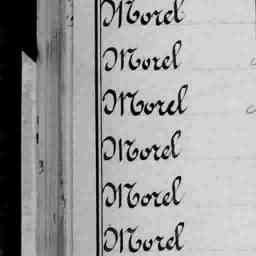 Morel
Morel
Morel
Morel
Morel
Morel